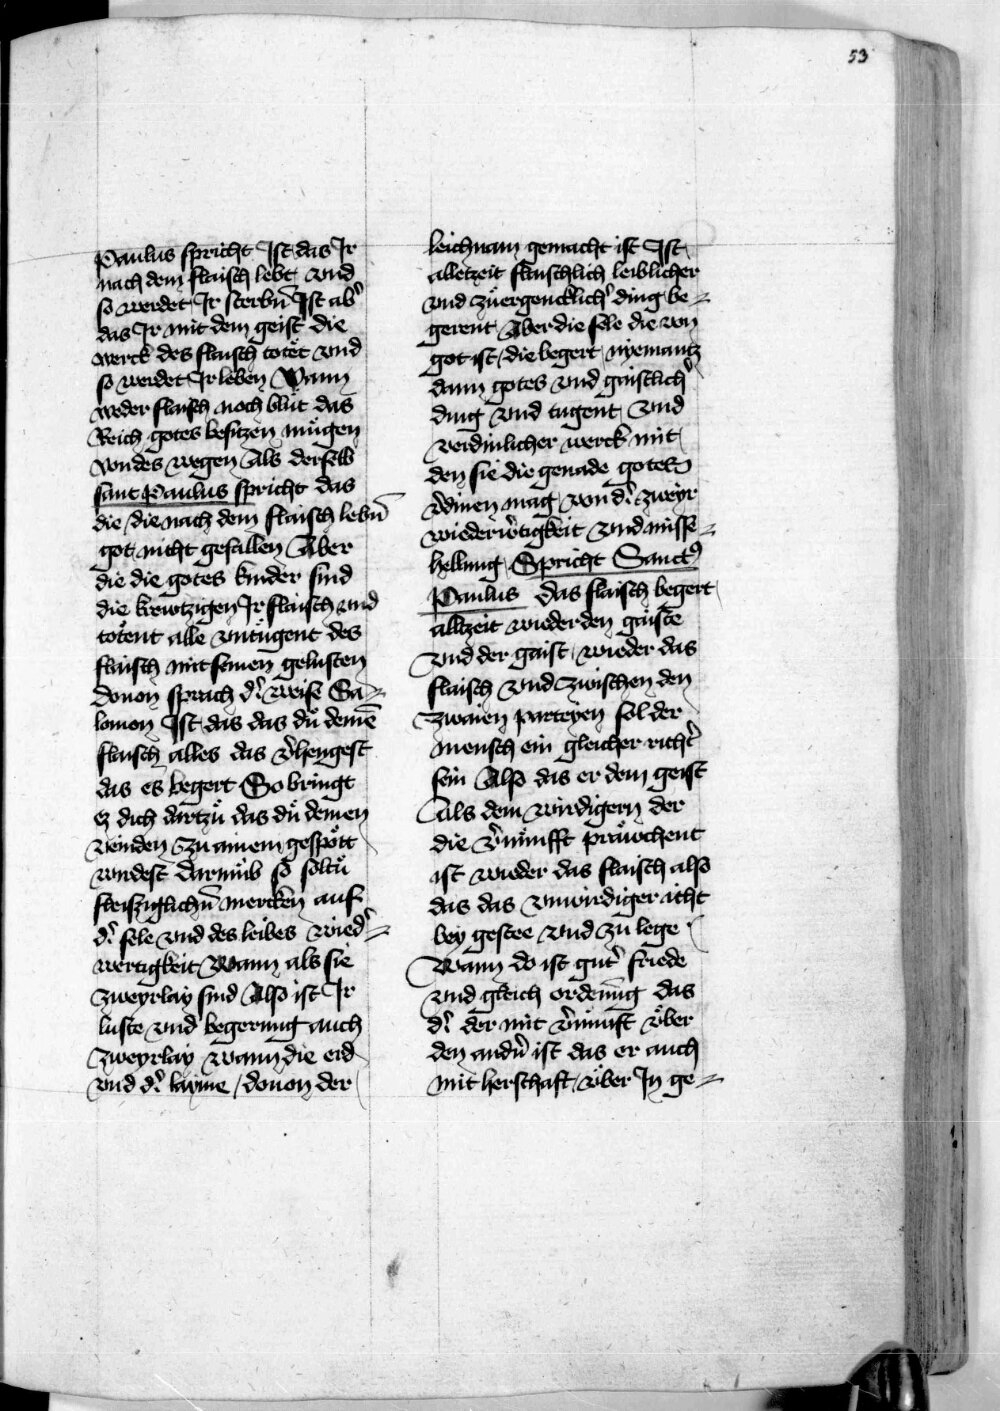 53
Paulus spricht Ist das Ir
nach dem flaisch lebt vnd
so werdet Ir sterbn̄ Ist ab᷑
das Ir mit dem geist die
werck des flaisch totet vnd
so werdet Ir leben Wann
weder flaisch noch blůt das
Reich gotes besitzen mügen
von des wegen Als derselb
sant Paulus spricht das
die / die nach dem flaisch lebn̄
got nicht gefallen Aber
die die gotes kinder sind
die krewtzigen Ir flaisch vnd
totent alle vntugent des
flaisch mit seinen gelusten
douon sprach d᷑ weise Sa-
lomon Ist das das dů deinē
flaisch alles das v᷑hengest
das es begert So bringt
ez dich dartzů das dů deinen
veinden zu ainem gespött
wirdest darumb so soltů
fleiszigklichn̄ mercken auf
d᷑ sele vnd des leibes wied᷑-
wertigkeit Wann als sie
zweyrlay sind Also ist Ir
luste vnd begerung auch
zweyrlay wann die erd
vnd d᷑ layme / douon der
leichnam gemacht ist Ist
alletzeit flaischlich leiblicher
vnd zůergencklich᷑ ding be-
gerent Aber die sele die von
got ist / die begert nyemantz
dann gotes vnd gaistlich᷑
ding vnd tugent vnd
verdinlicher werck mit
den sie die genade gotes
v᷑dinen mag / von d᷑ zweyr
wiederw᷑tigkeit vnd misse-
hellung Spricht Sanctꝰ
Paulus das flaisch begert
alltzeit wieder den gaiste
vnd der gaist / wieder das
flaisch vnd zwischen den
zwaien parteyen sol der
mensch ein gleicher richt᷑
sein Also das er dem geist
Als dem wirdigern der
die v᷑nůnfft prawchent
ist wieder das flaisch also
das das vnwirdiger icht
bey gestee vnd zu lege
Wann do ist gut᷑ friede
vnd gleich ordenūg das
d᷑ der mit v᷑nůnft vͤber
den andn̄ ist das er auch
mit herschaft / vͤber In ge-